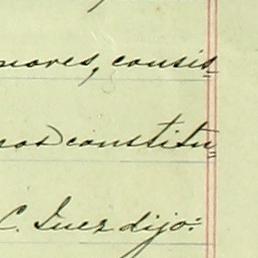 nores, consis-
nos constitu=
C. Juez dijo: